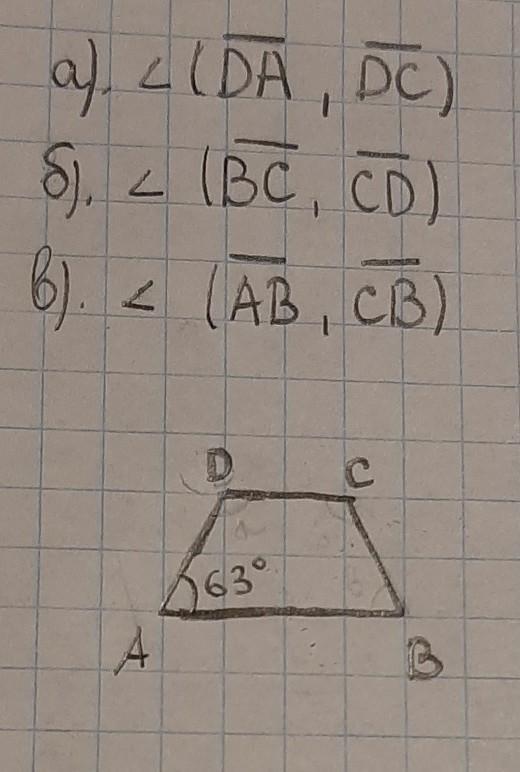 а). ∠(D̅A̅, D̅C̅)
б). ∠(B̅C̅, C̅D̅)
в). ∠(A̅B̅, C̅B̅)
D C
63°
A B